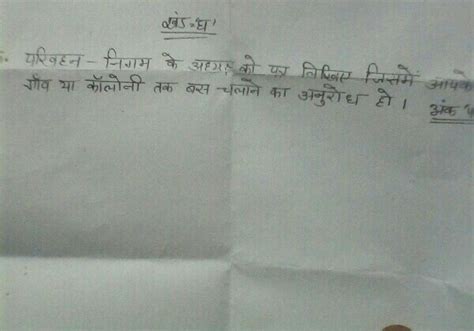 खंड-'घ'
परिवहन - निगम के अध्यक्ष को पत्र लिखिए जिसमें आपके
गाँव या कॉलोनी तक बस चलाने का अनुरोध हो।
अंक